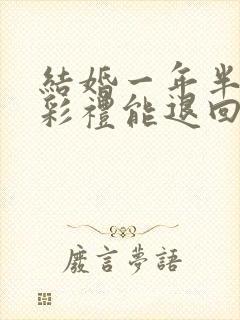 結婚一年半
彩禮能退回
廢言夢語